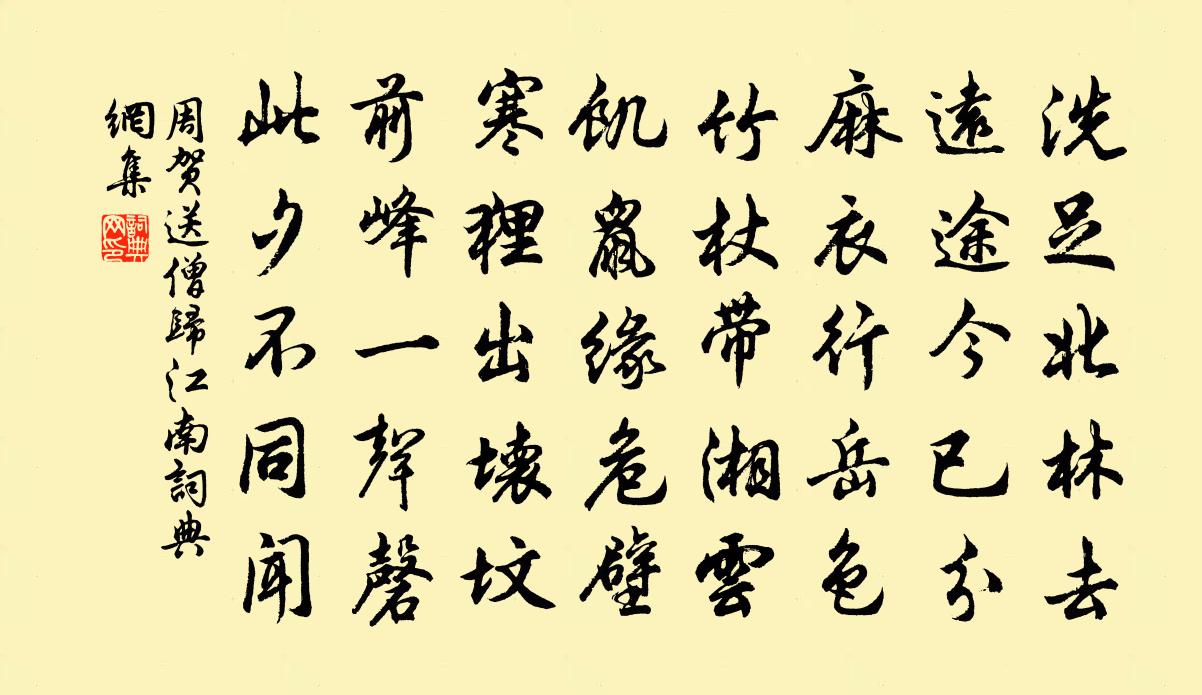 洗足北林去
遠途今已分
麻衣行岳色
竹杖带湘雲
飢鼠緣危壁
寒狸出壞坟
前峰一聲磬
此夕不同聞
周贺送僧歸江南詞典
網集
詞典
网印